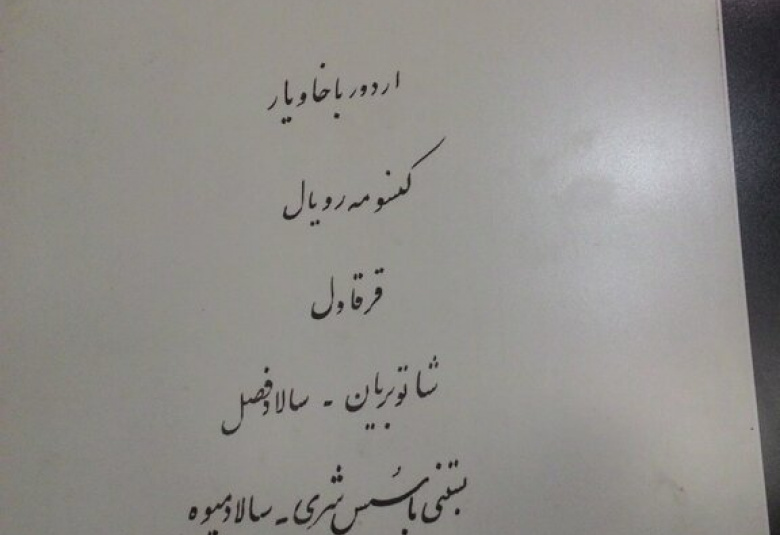 اردور با خاویار
کنسومه رویال
قرقاول
شاتوبریان - سالاد فصل
بستنی با سُس شری - سالاد میوه